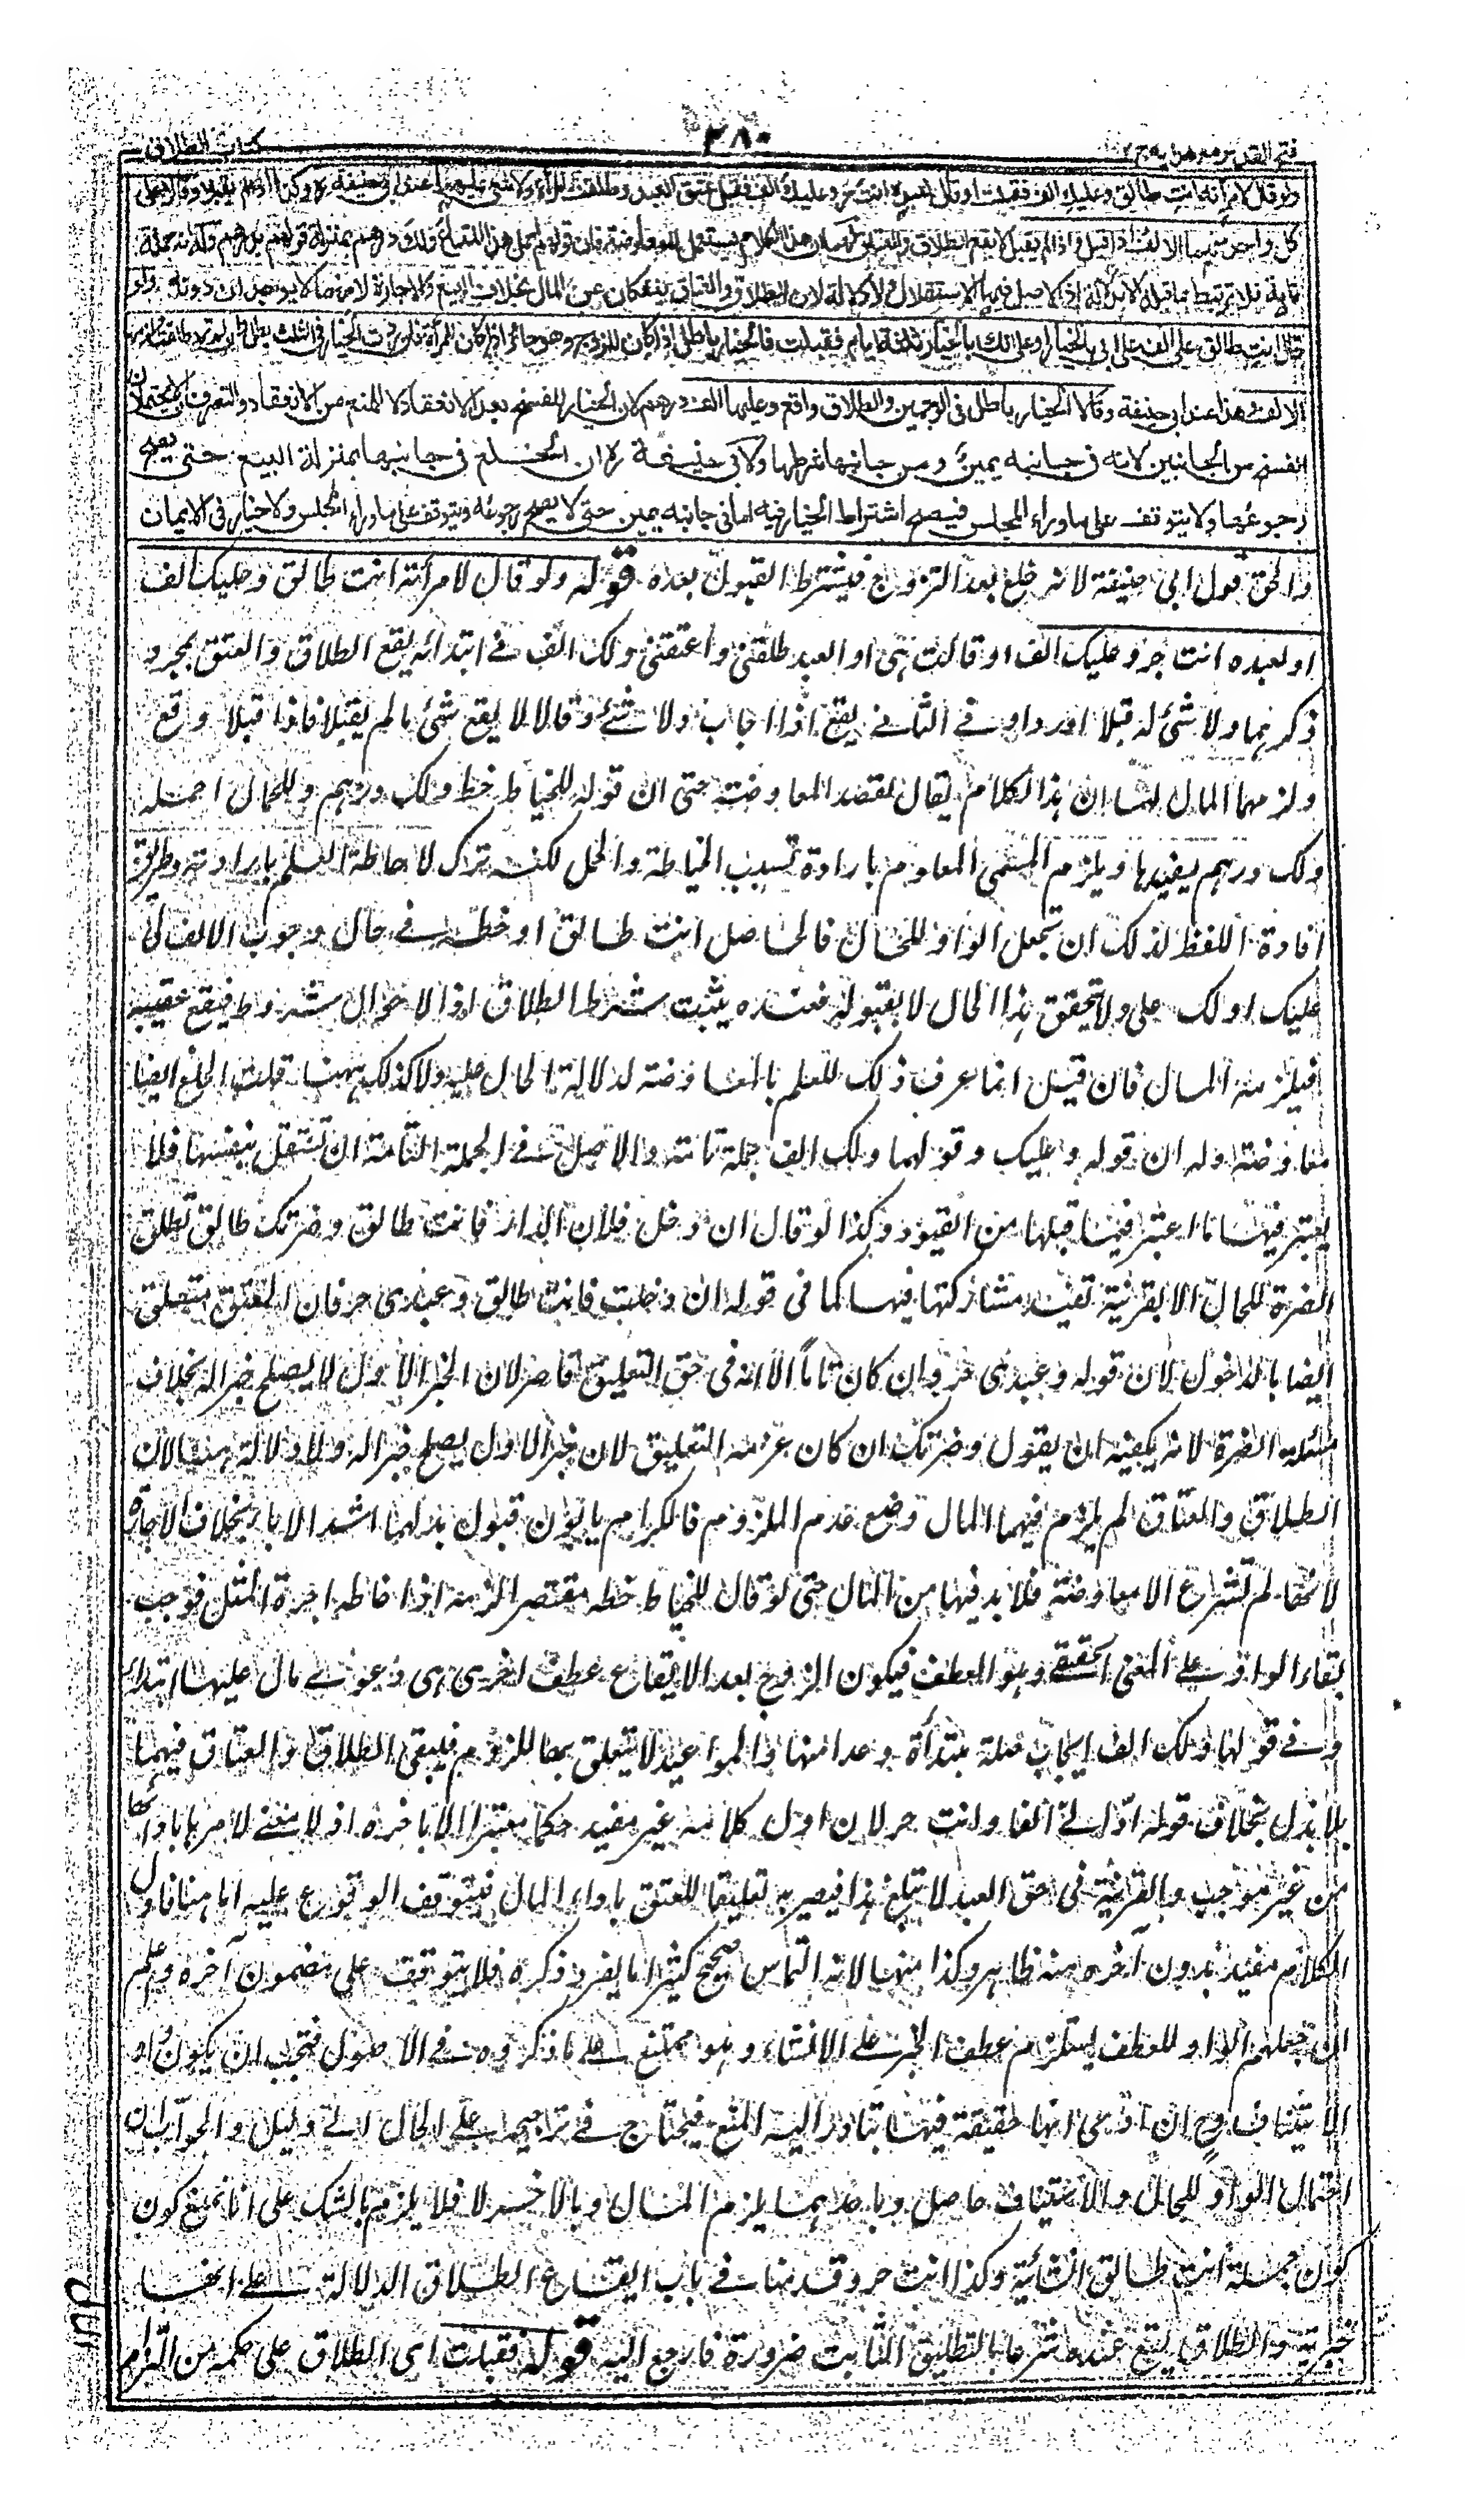 فتح القدير مع هدايه ج ٢
٣٨٠
كتاب الطلاق
ولو قال لامرأته انت طالق وعليك الف فقبلت او قال لعبده انت حر وعليك الف فقبل عتق العبد وطلقت المرأة ولا شئ عليهما عند ابي حنيفة وكذا اذا لم يقبلا وقالا على
كل واحد منهما الالف اذا قبل واذا لم يقبل لا يقع الطلاق والعتاق لهما ان هذا الكلام يستعمل للمعاوضة فان قولهم احمل هذا المتاع ولك درهم بمنزلة قولهم بدرهم وله انه جملة
تامة فلا ترتبط بما قبله الا بدلالة اذ الاصل فيها الاستقلال ولا دلالة لان الطلاق والعتاق ينفكان عن المال بخلاف البيع والاجارة لانهما لا يوجدان دونه ولو
قال انت طالق على الف على اني بالخيار او على انك بالخيار ثلثة ايام فقبلت فالخيار باطل اذا كان للزوج وهو جائز اذا كان للمرأة فان ردت الخيار في الثلث بطل وان لم ترد طلقت ولزمها
الالف هذا عند ابي حنيفة وقالا الخيار باطل في الوجهين والطلاق واقع وعليها الف درهم لان الخيار للفسخ بعد الانعقاد لا للمنع من الانعقاد والتصرفان لا يحتملان
الفسخ من الجانبين لانه في جانبه يمين ومن جانبها شرطها ولابي حنيفة ان الخلع في جانبها بمنزلة البيع حتى يصح
رجوعها ولا يتوقف على ما وراء المجلس فيصح اشتراط الخيار فيه اما في جانبه يمين حتى لا يصح رجوعه ويتوقف على ما وراء المجلس ولا خيار في الايمان
والحق قول ابي حنيفة لانه خلع بعد التزوج فيشترط القبول بعده قوله ولو قال لامرأته انت طالق وعليك الف
او لعبده انت حر وعليك الف او قالت هي او العبد طلقني واعتقني ولك الف في ابتدائه يقع الطلاق والعتق بمجرد
ذكرهما ولا شئ له قبلا او ردا وفي الثاني يقع اذا اجاب ولا شئ وقالا لا يقع شئ ما لم يقبلا فاذا قبلا وقع
ولزمهما المال لهما ان هذا الكلام يقال لقصد المعاوضة حتى ان قوله للخياط خطه ولك درهم وللحمال احمله
ولك درهم يفيدها ويلزم المسمى المعلوم بارادة تسبب الخياطة والحمل لكنه ترك لاحاطة العلم بارادته وطريق
افادة اللفظ لذلك ان تجعل الواو للحال فالحاصل انت طالق او خطه في حال وجوب الالف لي
عليك او لك علي ولا يتحقق هذا الحال الا بقبوله فعنده يثبت شرط الطلاق اذ الاحوال شروط فيقع عقيبه
فيلزمه المال فان قيل انما عرف ذلك للعلم بالمعاوضة لدلالة الحال عليه ولا كذلك ههنا قلت الخلع ايضا
معاوضة وله ان قوله وعليك وقولهما ولك الف جملة تامة والاصل في الجملة التامة ان تستقل بنفسها فلا
يعتبر فيها ما اعتبر فيما قبلها من القيود وكذا لو قال ان دخل فلان الدار فانت طالق وضرتك طالق تطلق
الضرة للحال الا بقرينة تفيد مشاركتها فيها كما في قوله ان دخلت فانت طالق وعبدي حر فان العتق يتعلق
ايضا بالدخول لان قوله وعبدي حر وان كان تاما الا انه في حق التعليق قاصر لان الخبر الاول لا يصلح خبرا له بخلاف
مسئلة الضرة لانه يكفيه ان يقول وضرتك ان كان غرضه التعليق لان خبر الاول يصلح خبرا له ولا دلالة هنا لان
الطلاق والعتاق لم يلزم فيهما المال وضع عدم اللزوم فالكرام يابون قبول بدلهما اشد الاباء بخلاف الاجارة
لانها لم تشرع الا معاوضة فلا بد فيها من المال حتى لو قال للخياط خطه مقتصرا لزمه اذا خاطه اجرة المثل فوجب
بقاء الواو على المعنى الحقيقي وهو العطف فيكون الزوج بعد الايقاع عطف اخرى هي دعوى مال عليها ابتداء
وفي قولها ولك الف ايجاب صلة مبتدأة وعدا منها والمواعيد لا يتعلق بها اللزوم فيبقى الطلاق والعتاق فيهما
بلا بدل بخلاف قوله اد الي الفا وانت حر لان اول كلامه غير مفيد حكما معتبرا الا باخره اذ لا معنى لامرها بادائها
من غير موجب والقرينة في حق العبد لا تبلغ هذا فيصير به تعليقا للعتق باداء المال فيتوقف الوقوع عليه اما هنا فاول
الكلام مفيد بدون آخره منه ظاهر وكذا منها لانه التماس صحيح كثيرا ما يفرد ذكره فلا يتوقف على مضمون آخره وعلم
ان جعلهم الواو للعطف يستلزم عطف الخبر على الانشاء وهو ممتنع على ما ذكروه في الاصول فيجب ان يكون او
الاستيناف وح ان ادعى انها حقيقة فيها تبادر اليه المنع فيحتاج في ترجيحه على الحال الى دليل والجواب ان
احتمال الواو للحال والاستيناف حاصل وباحدهما يلزم المال وبالآخر لا فلا يلزم بالشك على انا نمنع كون
كون جملة انت طالق انشائية وكذا انت حر وقدمنا في باب ايقاع الطلاق الدلالة على انها
خبرية والطلاق يقع عنده شرعا بالتطليق الثابت ضرورة فارجع اليه قوله فقبلت اى الطلاق على حكمه من التزام